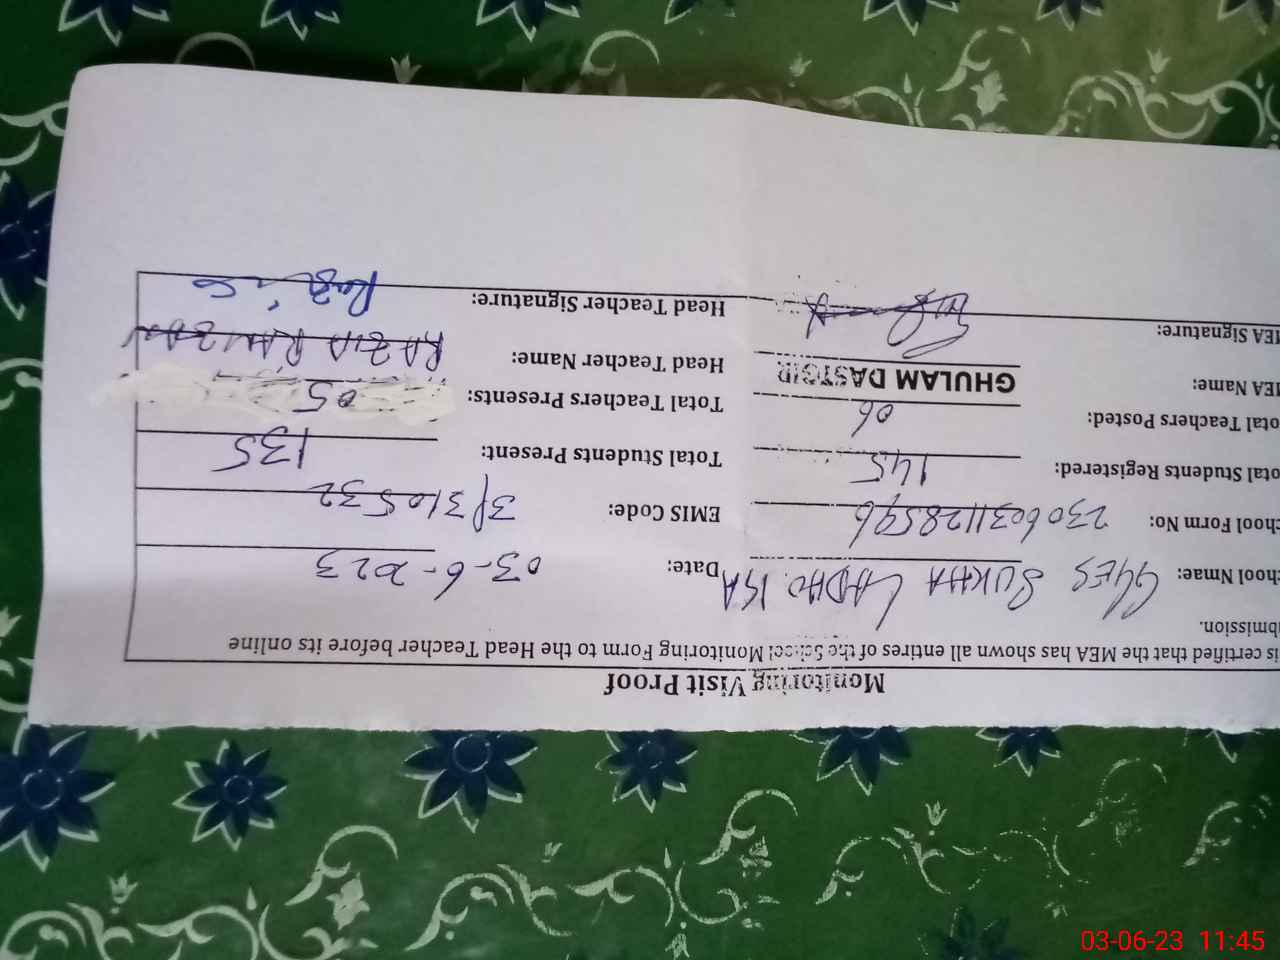 Monitoring Visit Proof
is certified that the MEA has shown all entires of the School Monitoring Form to the Head Teacher before its online
bmission.
chool Nmae: GGES SUKHA LADHO KA Date: 03-6-2023
chool Form No: 2306031128596 EMIS Code: 31310532
otal Students Registered: 145 Total Students Present: 135
otal Teachers Posted: 06 Total Teachers Presents: 05
MEA Name: GHULAM DASTGIR Head Teacher Name: RAZIA RAMZAN
MEA Signature: Head Teacher Signature: Razia
03-06-23 11:45